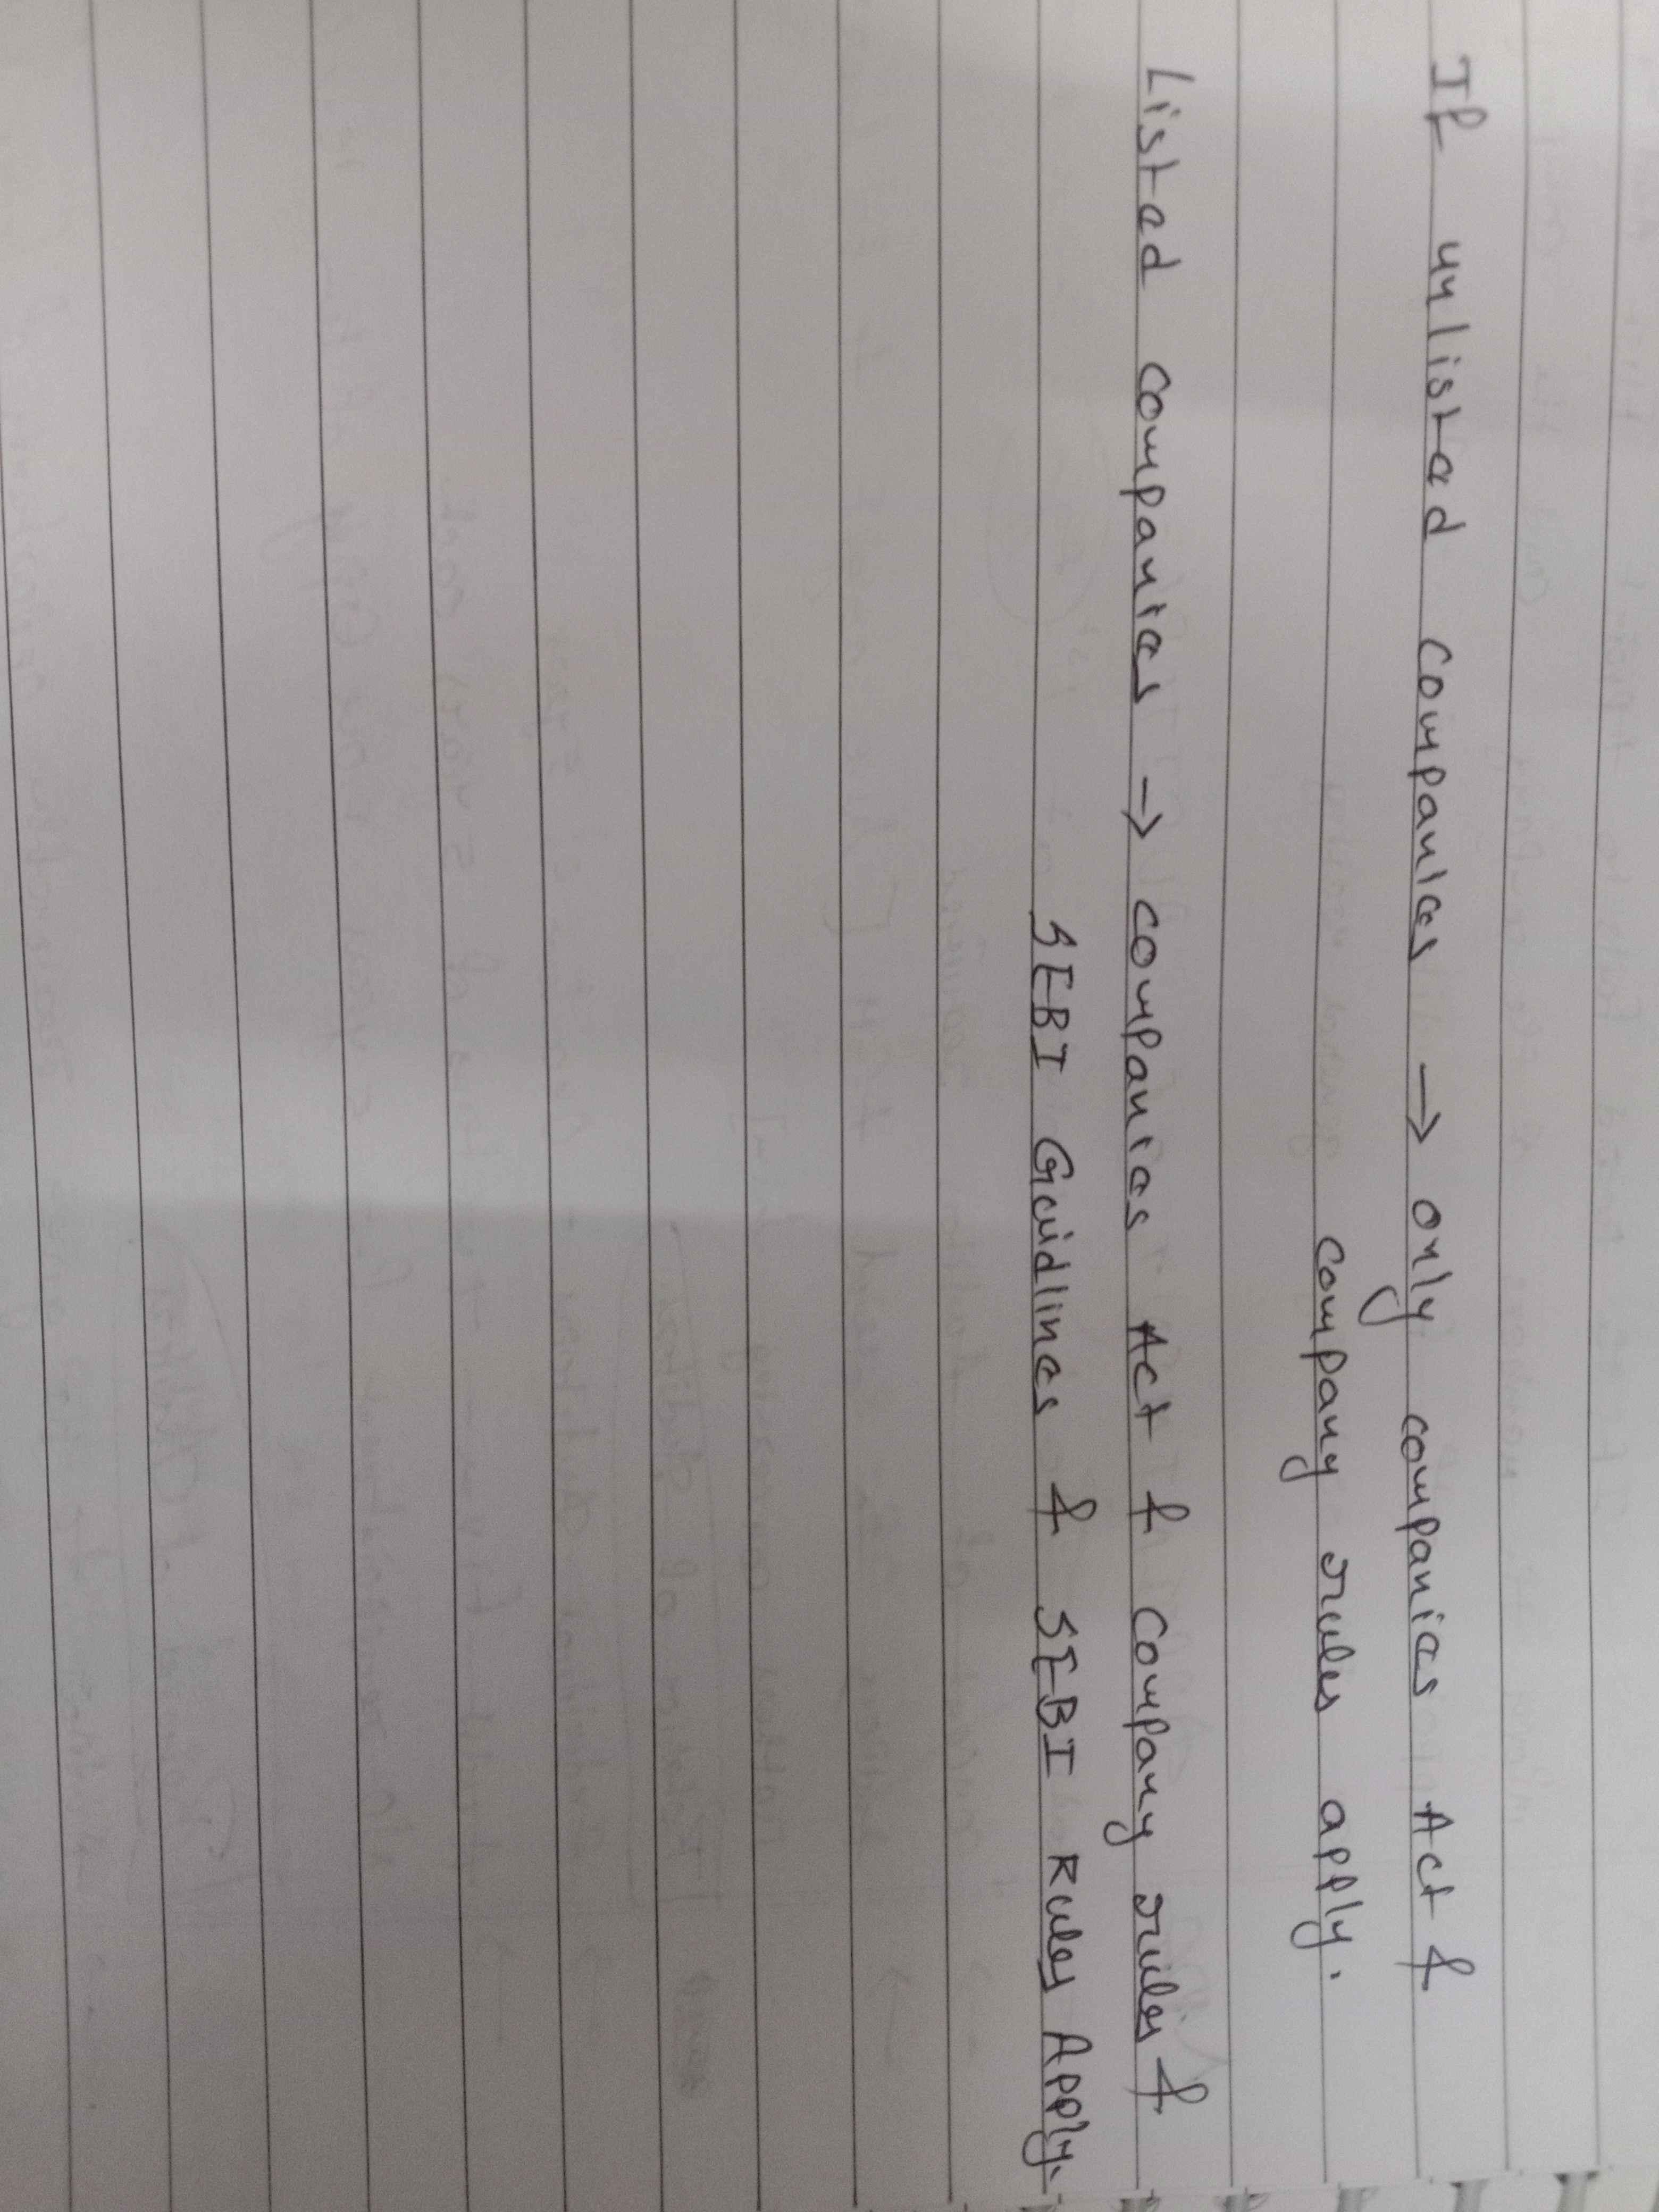 If unlisted companies → only companies Act &
company rules apply.
Listed companies → companies Act & company rules &
SEBI Guidlines & SEBI Rules Apply.